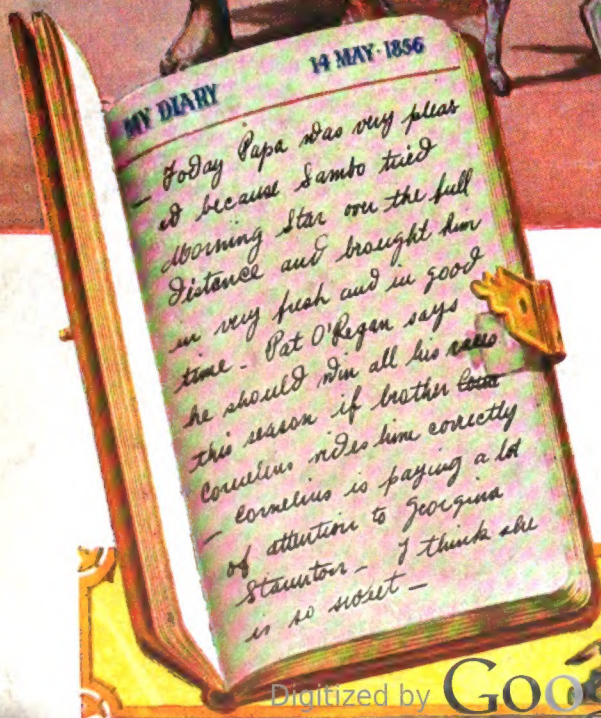 MY DIARY 14 MAY · 1856
— Today Papa was very pleas
ed because Sambo tried
Morning Star over the full
distance and brought him
in very fresh and in good
time - Pat O'Regan says
he should win all his races
this season if brother Corn
Cornelius rides him correctly
— Cornelius is paying a lot
of attention to Georgina
Staunton - I think she
is so sweet —
Digitized by Goo